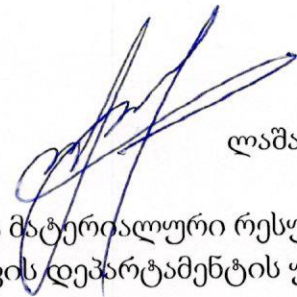 ლაშა
მატერიალური რესუ
ვის დეპარტამენტის უ